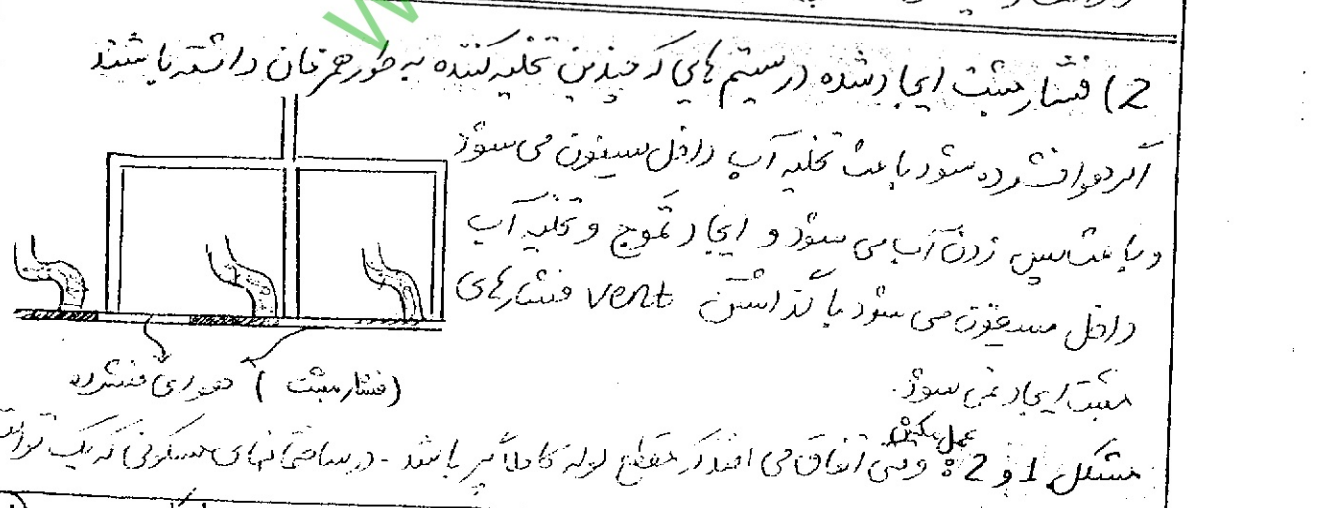 2) فشار مثبت ایجاد شده در سیستم هایی که چندین تخلیه کننده به طور همزمان داشته باشند
اگر هوا فشرده شود باعث تخلیه آب داخل سیفون می شود
و باعث پس زدن آب می شود و ایجاد تموج و تخلیه آب
داخل سیفون می شود با گذاشتن vent فشارهای
مثبت ایجاد نمی شود.
(فشار مثبت) هوای فشرده
عمل مکش
مشکل 1 و 2 : وقتی اتفاق می افتد که مقطع لوله کاملاً پر باشد - در ساختمانهای مسکونی که یک